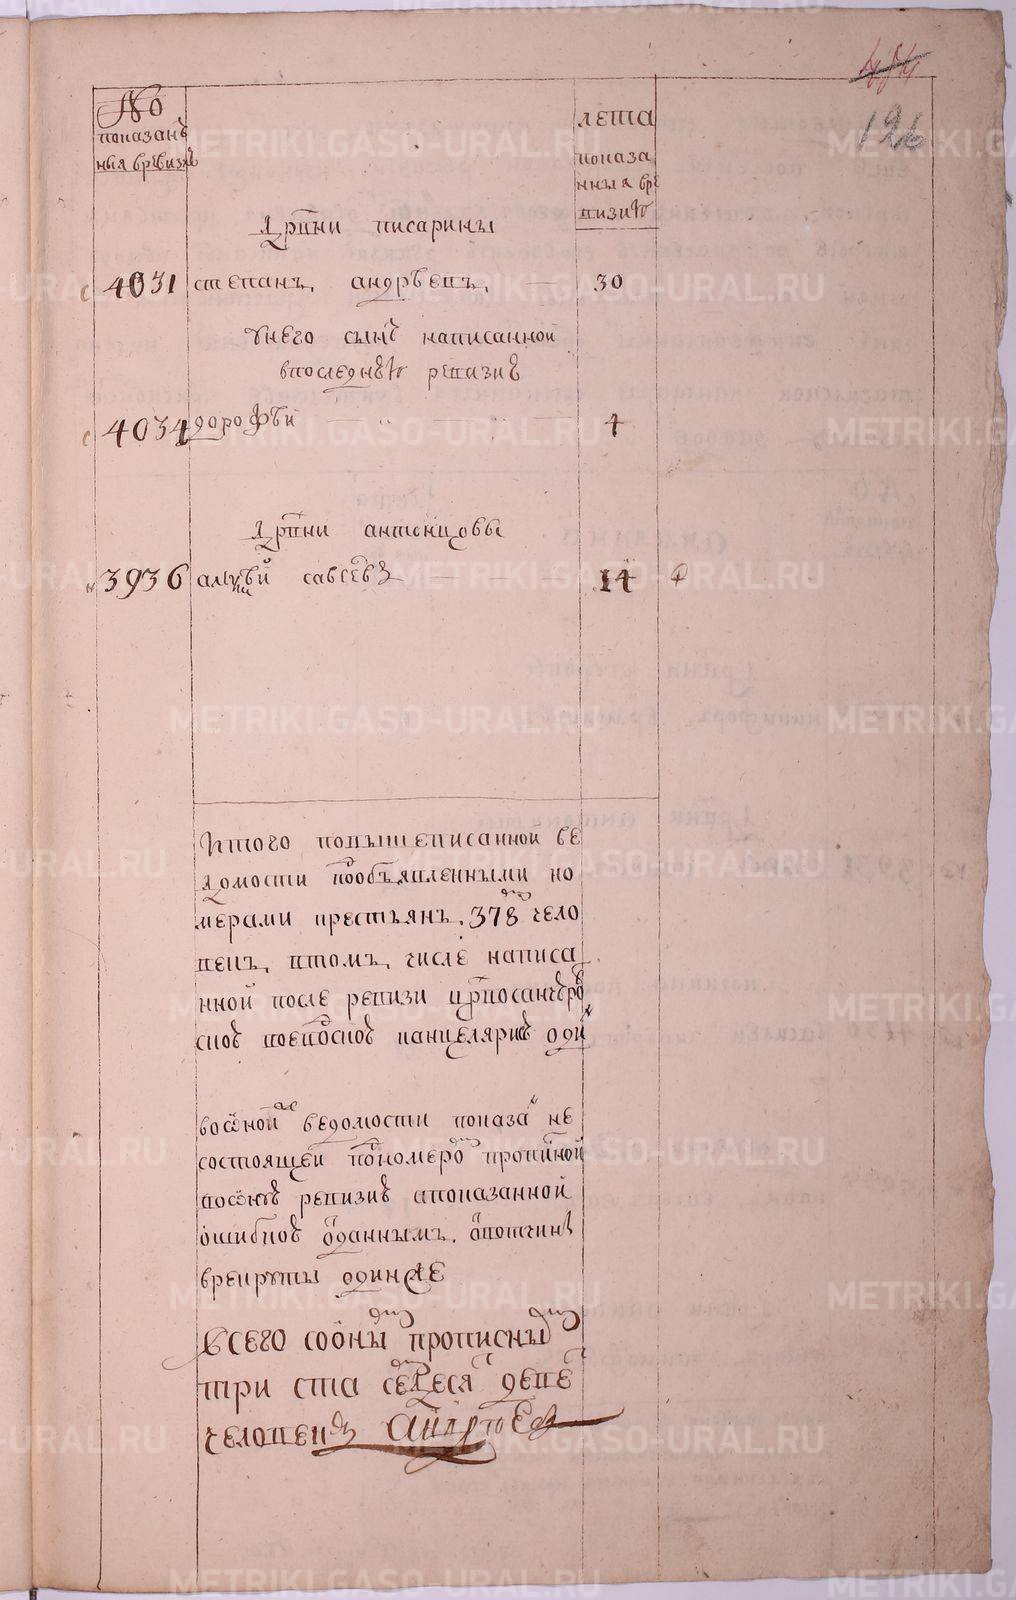 484
126
№
показанъ
ныя вревизiи
лета
показа
нныя вре
визию
дрвни писарины
4031 степанъ андрѣевъ 30
унего сынъ написанной
впоследнѣю ревизию
4034 дорофѣй 4
дрвни антонцовы
3936 алексѣй савсевъ 14
Итого повышеписанной ве
домости пообъявленными но
мерами крестьянъ 378 чело
векъ втомъ числе написа
нной после ревизи
канцелярию оди
восной ведомости показанъ не
состоящей пономеро прописной
ревизию апоказанной
ошибкою оданнымъ
врекруты одинже
всего сооны прописны
три ста седеся деве
человекъ Андреевъ
METRIKI.GASO-URAL.RU